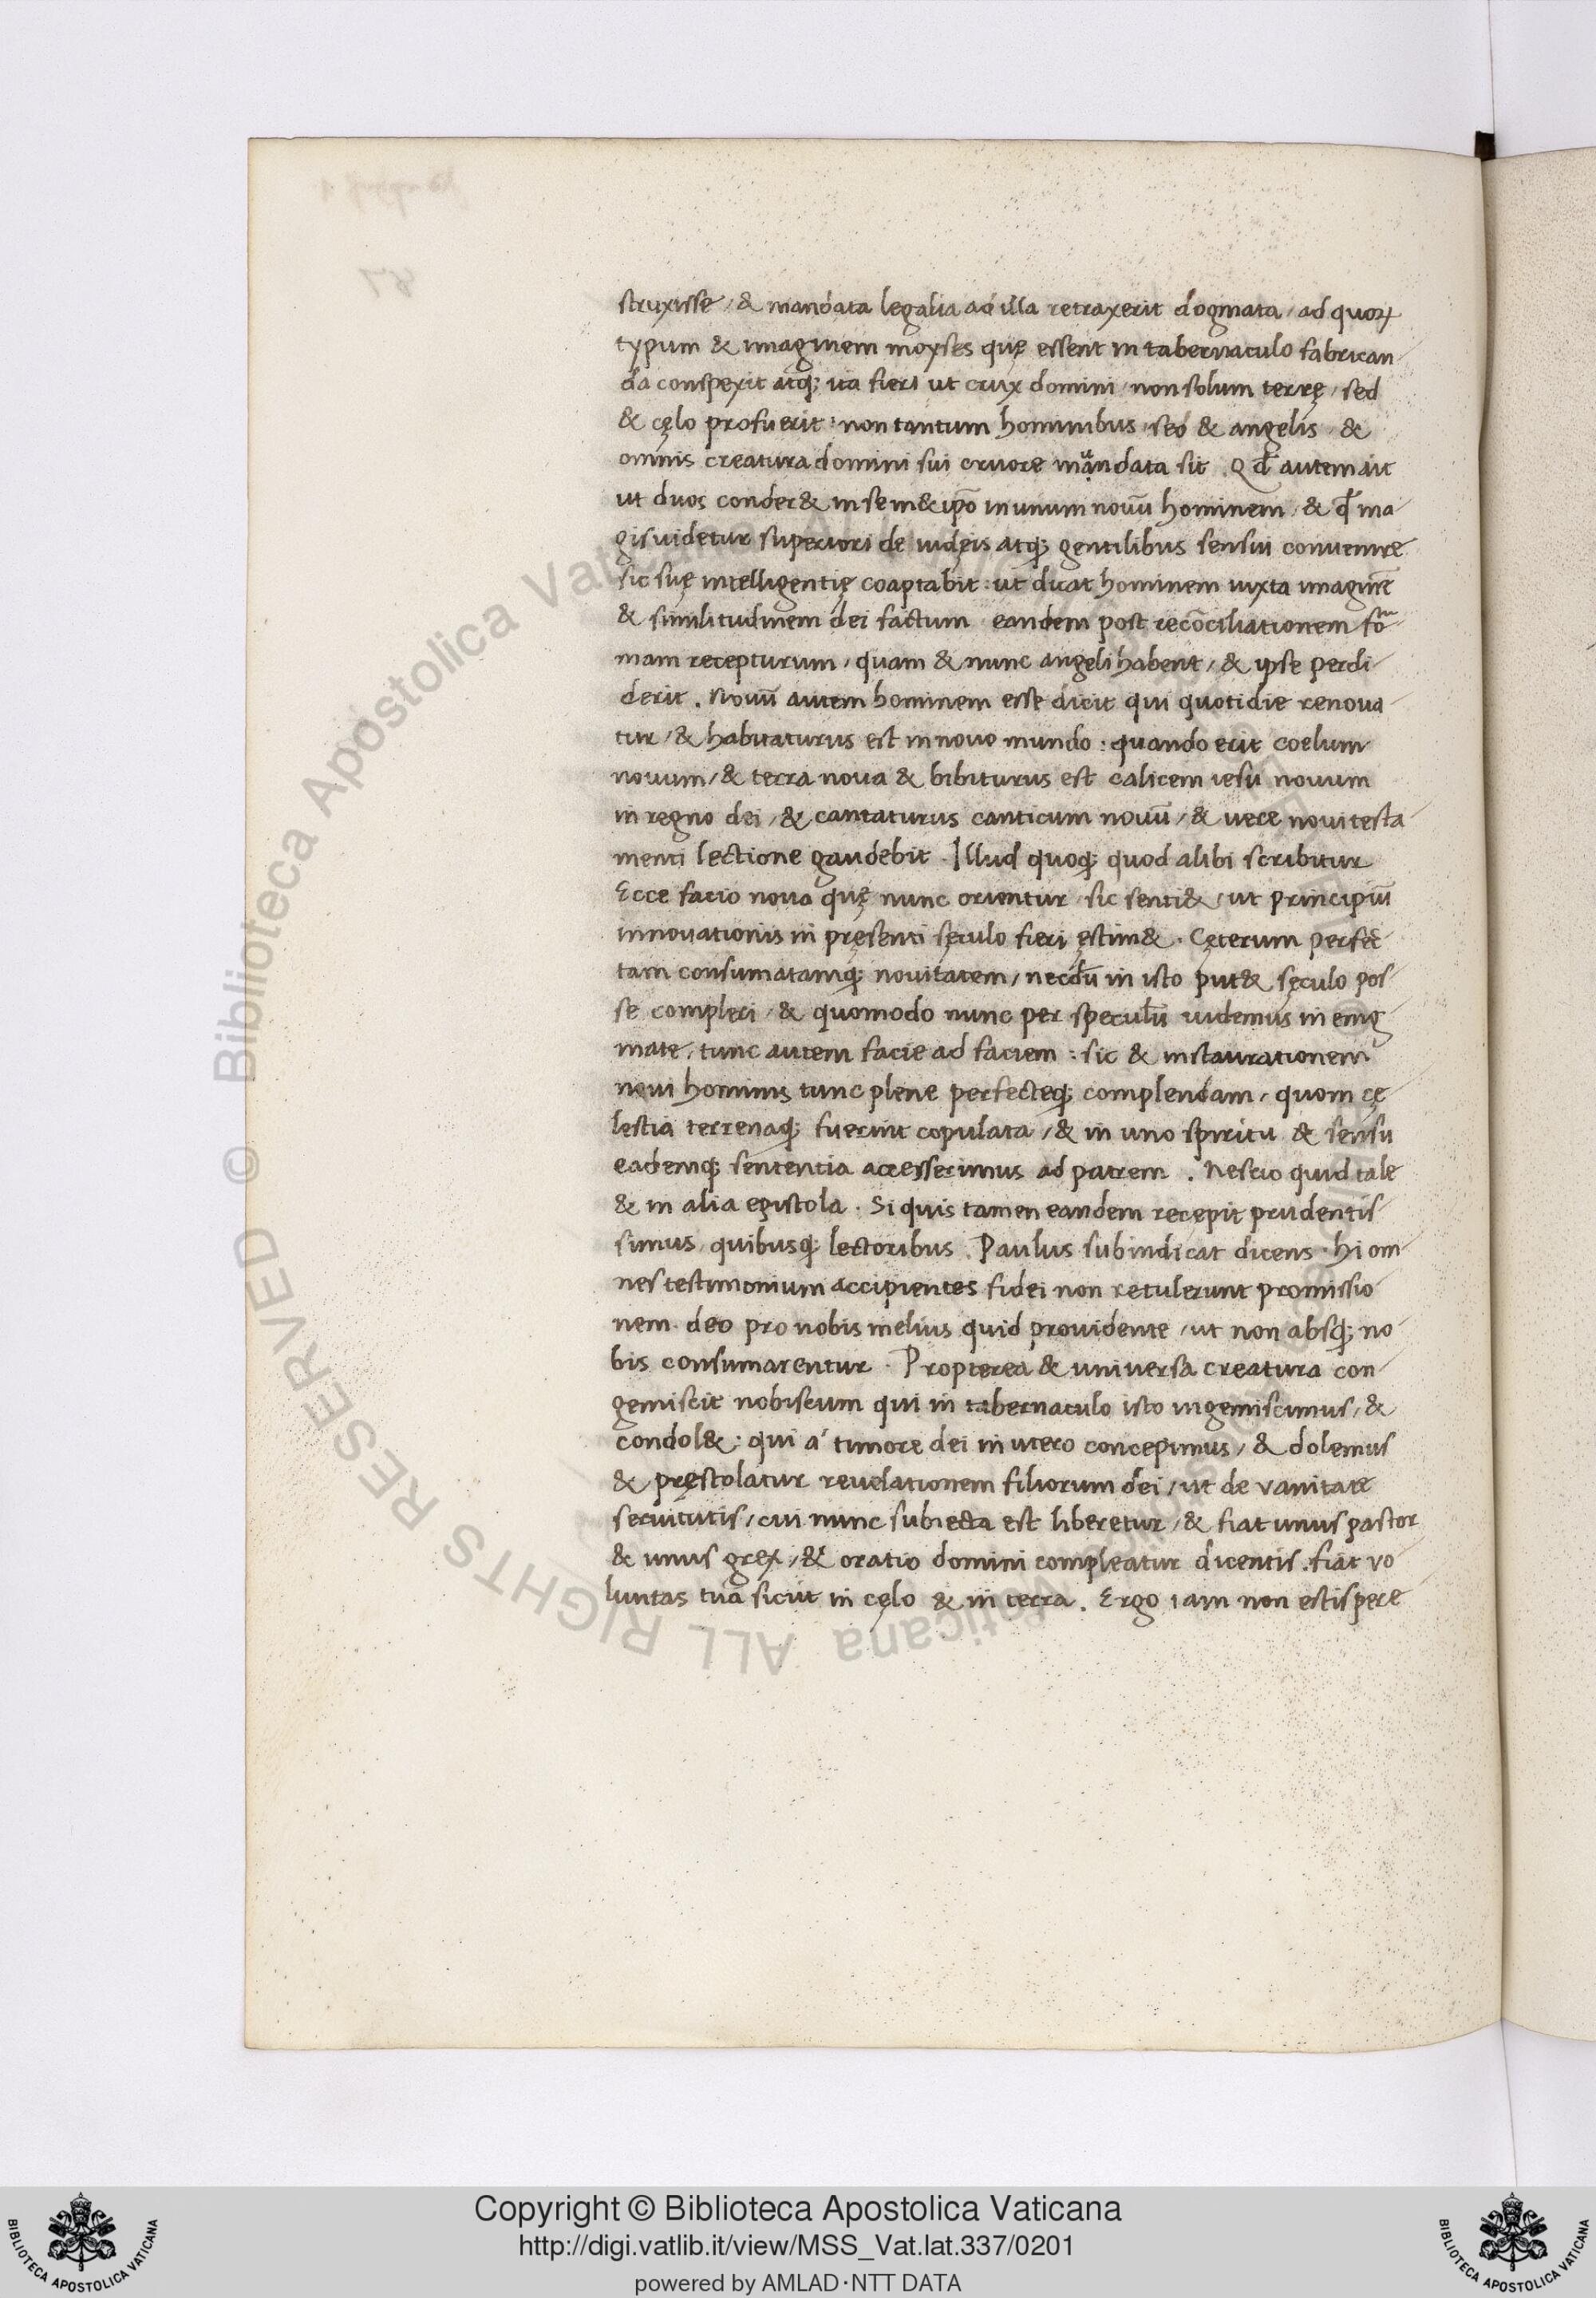 struxisse / & mandata legalia ad illa retraxerit dogmata / ad quoꝝ
typum & imaginem moyses quę essent in tabernaculo fabrican
da conspexit atq; ita fieri ut crux domini / non solum terrę / sed
& cęlo profuerit : non tantum hominibus / sed & angelis / &
omnis creatura domini sui cruore mandata sit . Qđ autem ait
ut duos conder& in sem&ip̄o in unum nouū hominem / & qđ ma
gis uidetur superiori de iudęis atq; gentilibus sensui conuenire
sic suę intelligentię coaptabit : ut dicat hominem iuxta imaginē
& similitudinem dei factum eandem post recōciliationem for
mam recepturum / quam & nunc angeli habent / & ipse perdi
derit . Nouū autem hominem esse dicit qui quotidie renoua
tur / & habitaturus est in nouo mundo : quando erit coelum
nouum / & terra noua & bibiturus est calicem iesu nouum
in regno dei / & cantaturus canticum nouū / & uere noui testa
menti lectione gaudebit . Illud quoq; quod alibi scribitur
Ecce facio noua quę nunc orientur / sic senti& / ut principiū
innouationis in pręsenti sęculo fieri ęstim& . Cęterum perfec
tam consumatamq; nouitatem / necdū in isto put& sęculo pos
se compleri / & quomodo nunc per speculū uidemus in enig
mate / tunc autem facie ad faciem : sic & instaurationem
noui hominis tunc plene perfecteq; complendam / quom cę
lestia terrenaq; fuerint copulata / & in uno spiritu & sensu
eademq; sententia accesserimus ad patrem . Nescio quid tale
& in alia epistola . Si quis tamen eandem recepit prudentis
simus / quibusq; lectoribus . Paulus subindicat dicens . Hi om
nes testimonium accipientes fidei non retulerunt promissio
nem . deo pro nobis melius quid prouidente / ut non absq; no
bis consumarentur . Propterea & uniuersa creatura con
gemiscit nobiscum qui in tabernaculo isto ingemiscimus / &
condol& : qui á timore dei in utero concepimus / & dolemus
& pręstolatur reuelationem filiorum dei / ut de vanitate
seruitutis / cui nunc subiecta est liberetur / & fiat unus pastor
& unus grex / & oratio domini compleatur dicentis . fiat vo
luntas tua sicut in cęlo & in terra . Ergo iam non estis pere
© Biblioteca Apostolica Vaticana ALL RIGHTS RESERVED
Copyright © Biblioteca Apostolica Vaticana
http://digi.vatlib.it/view/MSS_Vat.lat.337/0201
powered by AMLAD·NTT DATA
BIBLIOTECA APOSTOLICA VATICANA
BIBLIOTECA APOSTOLICA VATICANA